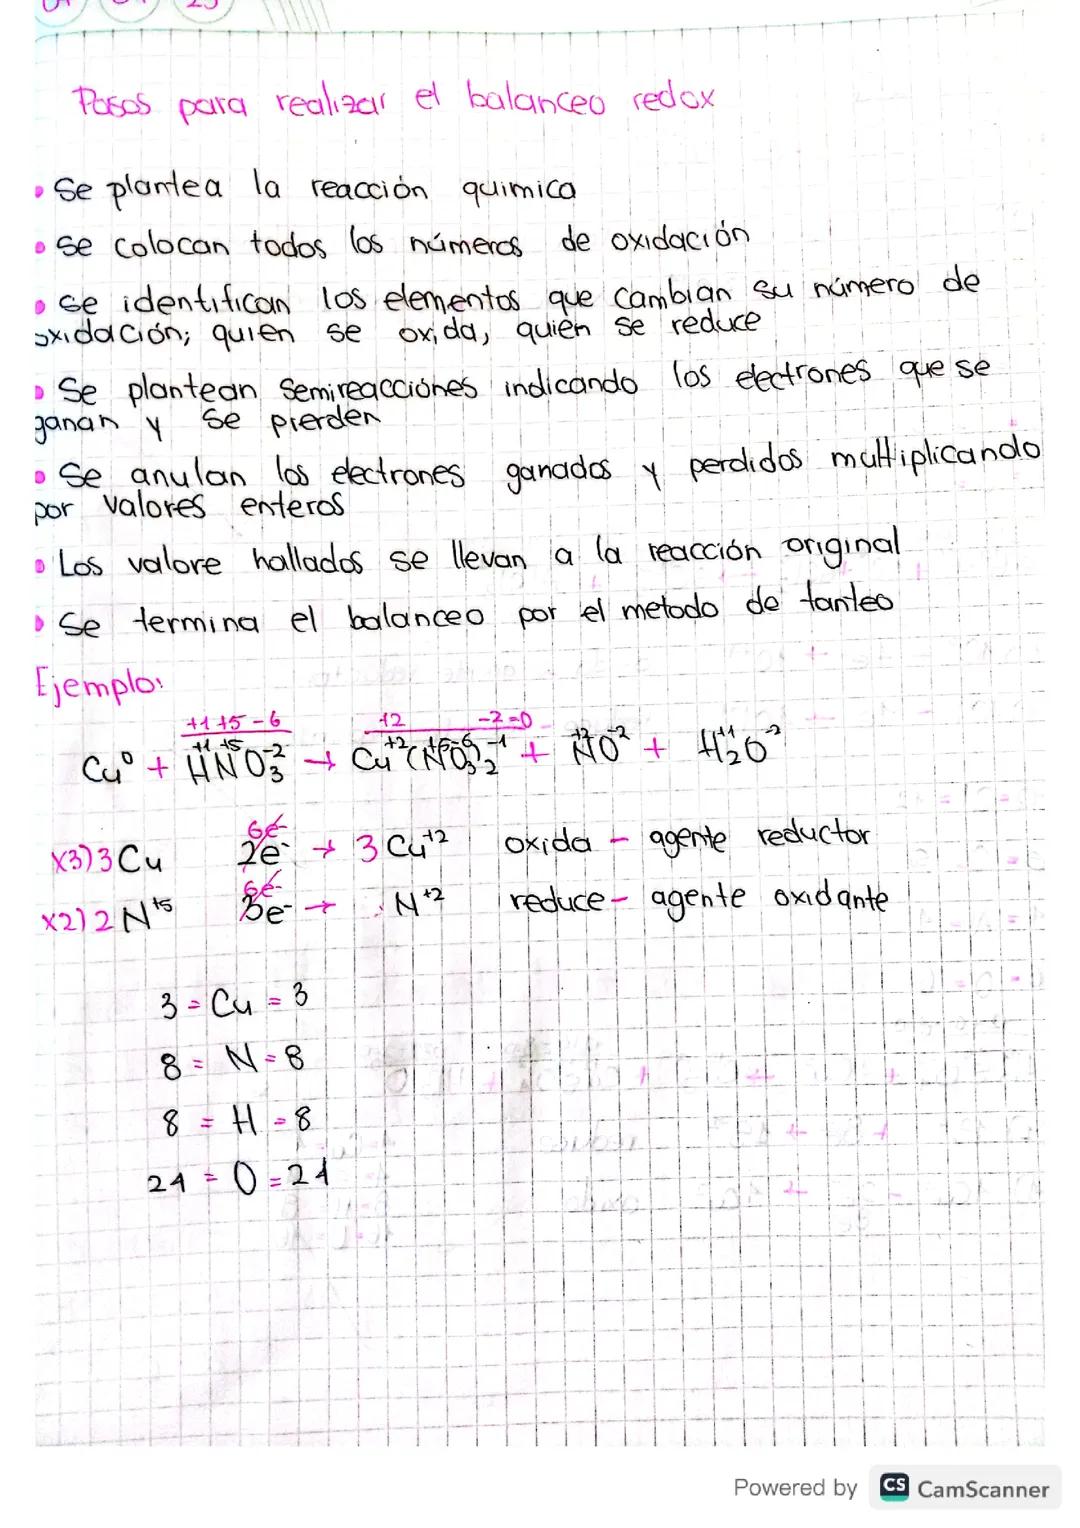 Pasos para realizar el balanceo redox
• Se plantea la reacción quimica
• Se colocan todos los números de oxidación
• Se identifican los elementos que cambian su número de
oxidación; quien se oxida, quien se reduce
• Se plantean semireacciónes indicando los electrones que se
ganan y se pierden
• Se anulan los electrones ganados y perdidos multiplicando
por valores enteros
• Los valore hallados se llevan a la reacción original
• Se termina el balanceo por el metodo de tanteo
Ejemplo:
+1 +5 -6 +2 -2=0
Cu⁰ + H⁺¹N⁺⁵O₃⁻² → Cu⁺²(N⁺⁵O₃⁻⁶)₂⁻¹ + N⁺²O⁻² + H₂⁺¹O⁻²
6e⁻
x3) 3 Cu 2e⁻ → 3 Cu⁺² oxida - agente reductor
6e⁻
x2) 2 N⁺⁵ 3e⁻ → N⁺² reduce - agente oxidante
3 = Cu = 3
8 = N = 8
8 = H = 8
24 = O = 24
Powered by CS CamScanner